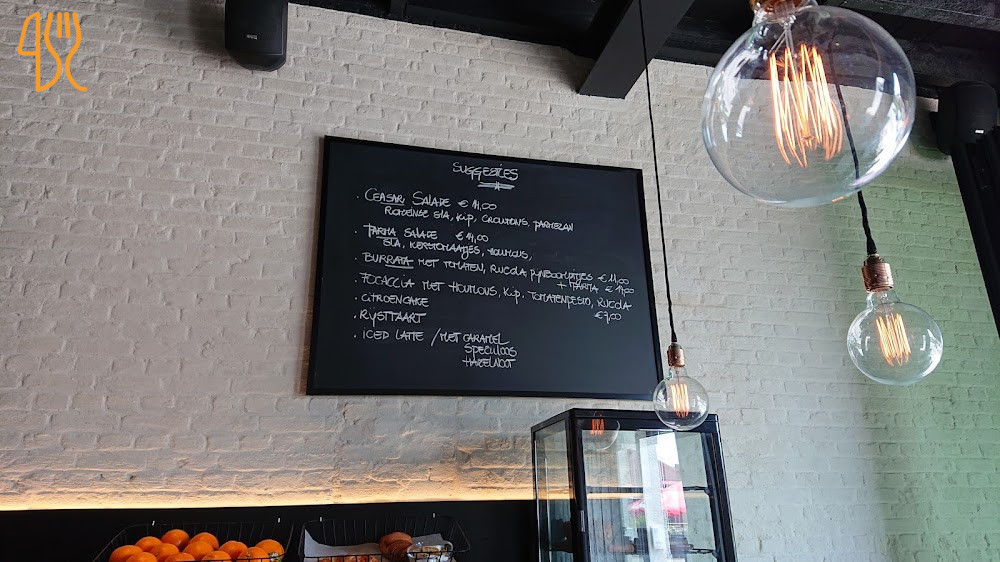 SUGGESTIES
. CEASAR SALADE € 14,00
ROMEINSE SLA, KIP, CROUTONS, PARMEZAN
. PARMA SALADE € 14,00
SLA, KERSTOMAATJES, HOUMOUS,
. BURRATA MET TOMATEN, RUCOLA, PIJNBOOMPITJES € 11,00
+ PARMA € 14,00
. FOCACCIA MET HOUMOUS, KIP, TOMATENPESTO, RUCOLA
€ 7,00
. CITROENCAKE
. RIJSTTAART
. ICED LATTE / MET CARAMEL
SPECULOOS
HAZELNOOT